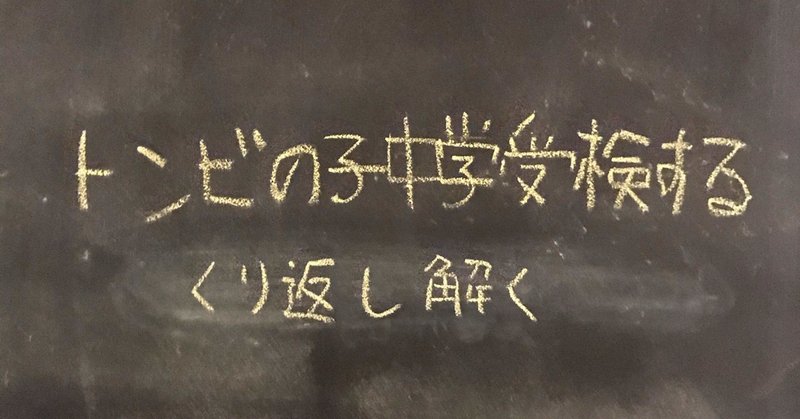 トンビの子中学受検する
くり返し解く